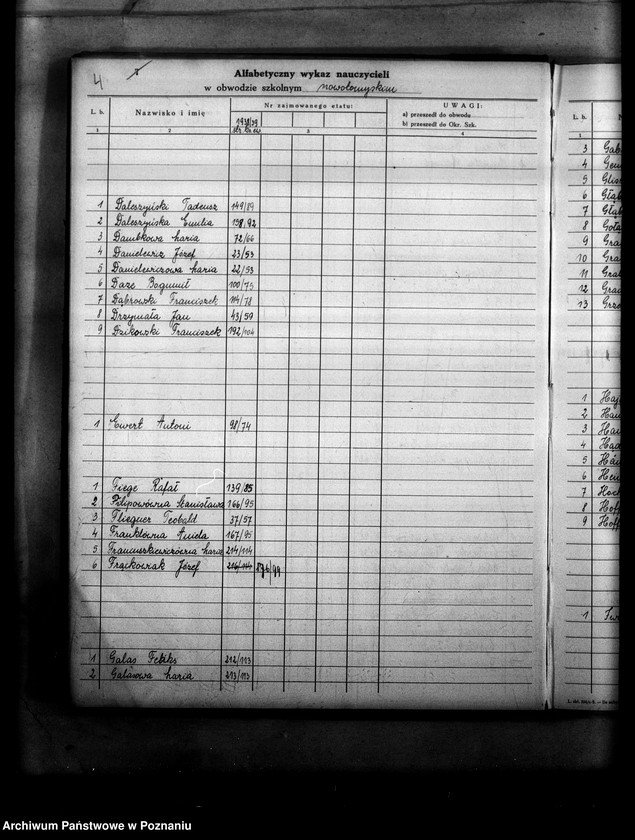 4
Alfabetyczny wykaz nauczycieli
w obwodzie szkolnym nowotomyskim
L. b. Nazwisko i imię Nr zajmowanego etatu: UWAGI:
1938/39
a) przeszedł do obwodu
b) przeszedł do Okr. Szk.
1 2 3 4
1 Daleszyński Tadeusz 149/89
2 Daleszyńska Emilia 158/92
3 Dambkowa Maria 72/66
4 Danielewicz Józef 23/53
5 Danielewiczowa Maria 22/53
6 Daze Bogumił 100/75
7 Dąbrowski Franciszek 114/78
8 Drzymała Jan 43/59
9 Dzikowski Franciszek 192/104
1 Ewert Antoni 98/74
1 Fiege Rafał 139/85
2 Filipowówna Stanisława 166/95
3 Fliegner Teobald 37/57
4 Franklówna Aniela 167/95
5 Franciszkiewiczówna Maria 214/114
6 Frąckowiak Józef 216/114
1 Galas Feliks 212/113
2 Galasowa Maria 213/113
L. b.
1
3
4
5
6
7
8
9
10
11
12
13
1
2
3
4
5
6
7
8
9
1
Archiwum Państwowe w Poznaniu